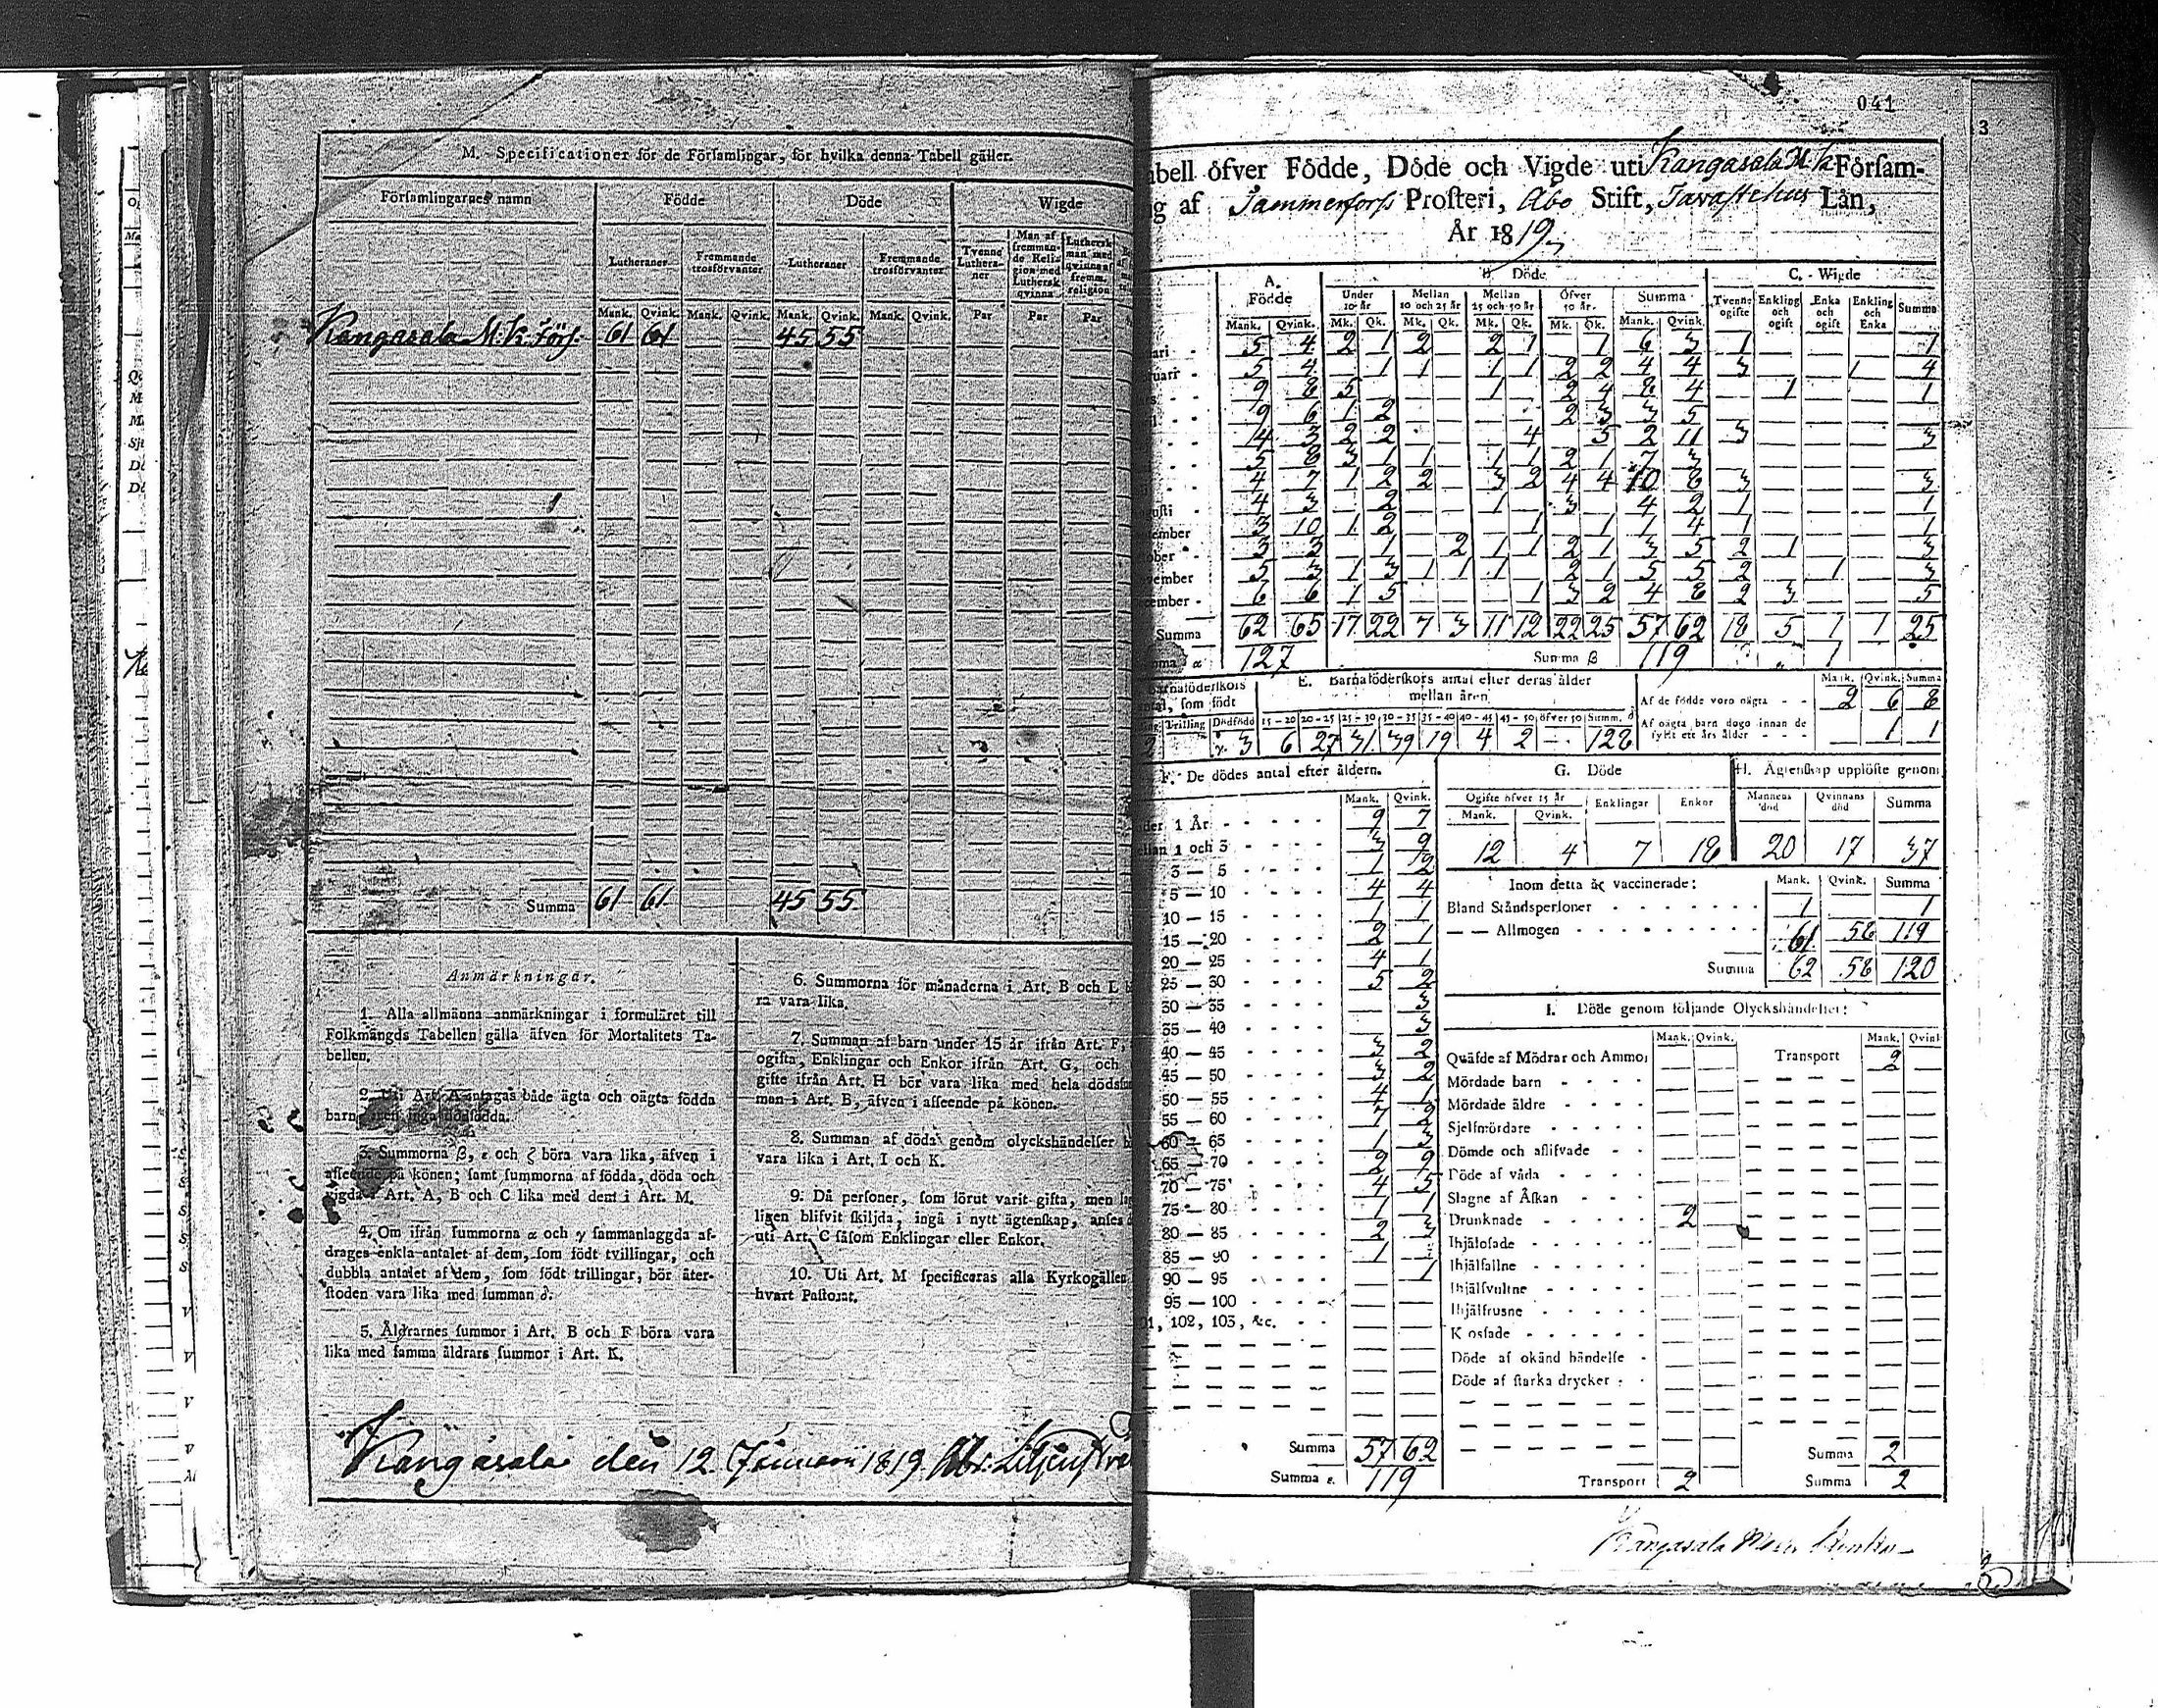 M. Specificationer för de Förſamlingar, för hvilka denna Tabell gäller.
Förſamlingarnes namn Födde Döde Wigde
Lutheraner Fremmande trosförvanter Lutheraner Fremmande trosförvanter Tvenne Luthera-ner Man af fremman-de Reli-gion med Lutherſk qvinna Lutherſk man med qvinna af fremm. religion
Mank. Qvink. Mank. Qvink. Mank. Qvink. Mank. Qvink. Par Par Par
Kangasala M. K. Förſ. 61 61 45 55
Summa 61 61 45 55
Anmärkningar.
1. Alla allmänna anmärkningar i formuläret till
Folkmängds Tabellen gälla äfven för Mortalitets Ta-
bellen.
2. Uti Art. A antagas både ägta och oägta födda
barn men inga dödfödda.
3. Summorna β, ε och ζ böra vara lika, äfven i
afſeende på könen; ſamt ſummorna af födda, döda och
vigda i Art. A, B och C lika med dem i Art. M.
4. Om ifrån ſummorna α och γ ſammanlaggda af-
drages enkla antalet af dem, ſom födt tvillingar, och
dubbla antalet af dem, ſom födt trillingar, bör åter-
ſtoden vara lika med ſumman δ.
5. Åldrarnes ſummor i Art. B och F böra vara
lika med ſamma åldrars ſummor i Art. K.
6. Summorna för månaderna i Art. B och L b
ra vara lika.
7. Summan af barn under 15 år ifrån Art. F,
ogifta, Enklingar och Enkor ifrån Art. G, och
gifte ifrån Art. H bör vara lika med hela dödsſum
man i Art. B, äfven i afſeende på könen.
8. Summan af döda genom olyckshändelſer b
vara lika i Art. I och K.
9. Då perſoner, ſom förut varit gifta, men la
ligen blifvit ſkiljda, ingå i nytt ägtenſkap, anſes d
uti Art. C ſåſom Enklingar eller Enkor.
10. Uti Art. M ſpecificeras alla Kyrkogällen
hvart Paſtorat.
Kangasala den 12. Januarii 1819.
041
3
abell öfver Födde, Döde och Vigde uti Kangasala M. K. Förſam-
g af Tammerfors Proſteri, Åbo Stift, Tavaſtehus Län,
År 1819,
A. Födde B. Döde C. Wigde
Under 10 år Mellan 10 och 25 år Mellan 25 och 50 år Öfver 50 år. Summa Tvenne ogifte Enkling och ogift Enka och ogift Enkling och Enka Summa
Mank. Qvink. Mk. Qk. Mk. Qk. Mk. Qk. Mk. Qk. Mank. Qvink.
ari 5 4 2 1 2 2 1 1 6 3 1 1
ruari 5 4 1 1 1 1 2 2 4 4 3 1 4
9 8 5 1 2 4 8 4 1 1
9 6 1 2 2 3 3 5
4 3 2 2 4 5 2 11 3 3
5 8 3 1 1 1 1 2 1 7 3
4 7 1 2 2 3 2 4 4 10 8 3 3
guſti 4 3 2 1 3 4 2 1 1
tember 3 10 1 2 1 1 1 4 1 1
tober 3 3 1 2 1 1 2 1 3 5 2 1 3
vember 5 3 1 3 1 1 1 2 1 5 5 2 1 3
cember 6 6 1 5 1 3 2 4 8 2 3 5
Summa 62 65 17 22 7 3 11 12 22 25 57 62 18 5 1 1 25
α 127 Summa β 119
Barnaföderſkors
, ſom födt
Trilling Dödfödd
2 γ. 3
E. Barnaföderſkors antal efter deras ålder
mellan åren
15-20 20-25 25-30 30-35 35-40 40-45 45-50 öfver 50 Summ. δ
6 27 31 39 19 4 2 128
Mank. Qvink. Summa
Af de födde voro oägta 2 6 8
Af oägta barn dogo innan de
fyllt ett års ålder 1 1
F. De dödes antal efter åldern.
Mank. Qvink.
der 1 År 9 7
llan 1 och 3 3 9
3 — 5 1 2
5 — 10 4 4
10 — 15 1 1
15 — 20 2 1
20 — 25 4 1
25 — 30 5 2
30 — 35 3
35 — 40 3
40 — 45 3 2
45 — 50 3 2
50 — 55 4 1
55 — 60 7 2
60 — 65 1 3
65 — 70 2 9
70 — 75 4 5
75 — 80 1 1
80 — 85 2 3
85 — 90 1
90 — 95 1
95 — 100
01, 102, 103, &c.
Summa 57 62
Summa ε. 119
G. Döde
Ogifte öfver 15 år Enklingar Enkor
Mank. Qvink.
12 4 7 18
H. Ägtenſkap upplöſte genom
Mannens död Qvinnans död Summa
20 17 37
Inom detta år vaccinerade: Mank. Qvink. Summa
Bland Ståndsperſoner 1 1
— — Allmogen 61 58 119
Summa 62 58 120
I. Döde genom följande Olyckshändelſer:
Mank. Qvink. Mank. Qvink
Quäfde af Mödrar och Ammor Transport 2
Mördade barn
Mördade äldre
Sjelfmördare
Dömde och aflifvade
Döde af våda
Slagne af Åſkan
Drunknade 2
Ihjäloſade
Ihjälfallne
Ihjälſvultne
Ihjälfrusne
Koloſade
Döde af okänd händelſe
Döde af ſtarka drycker
Summa 2
Transport 2 Summa 2
Kangasala